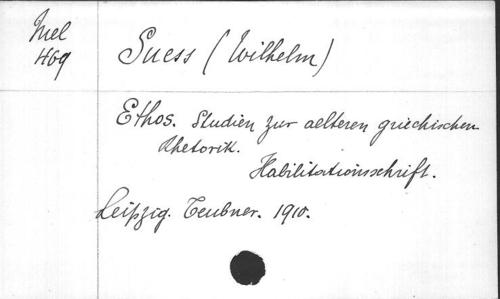 Mel
469
Suess (Wilhelm)
Ethos. Studien zur aelteren griechischen
Rhetorik.
Habilitationsschrift.
Leipzig. Teubner. 1910.